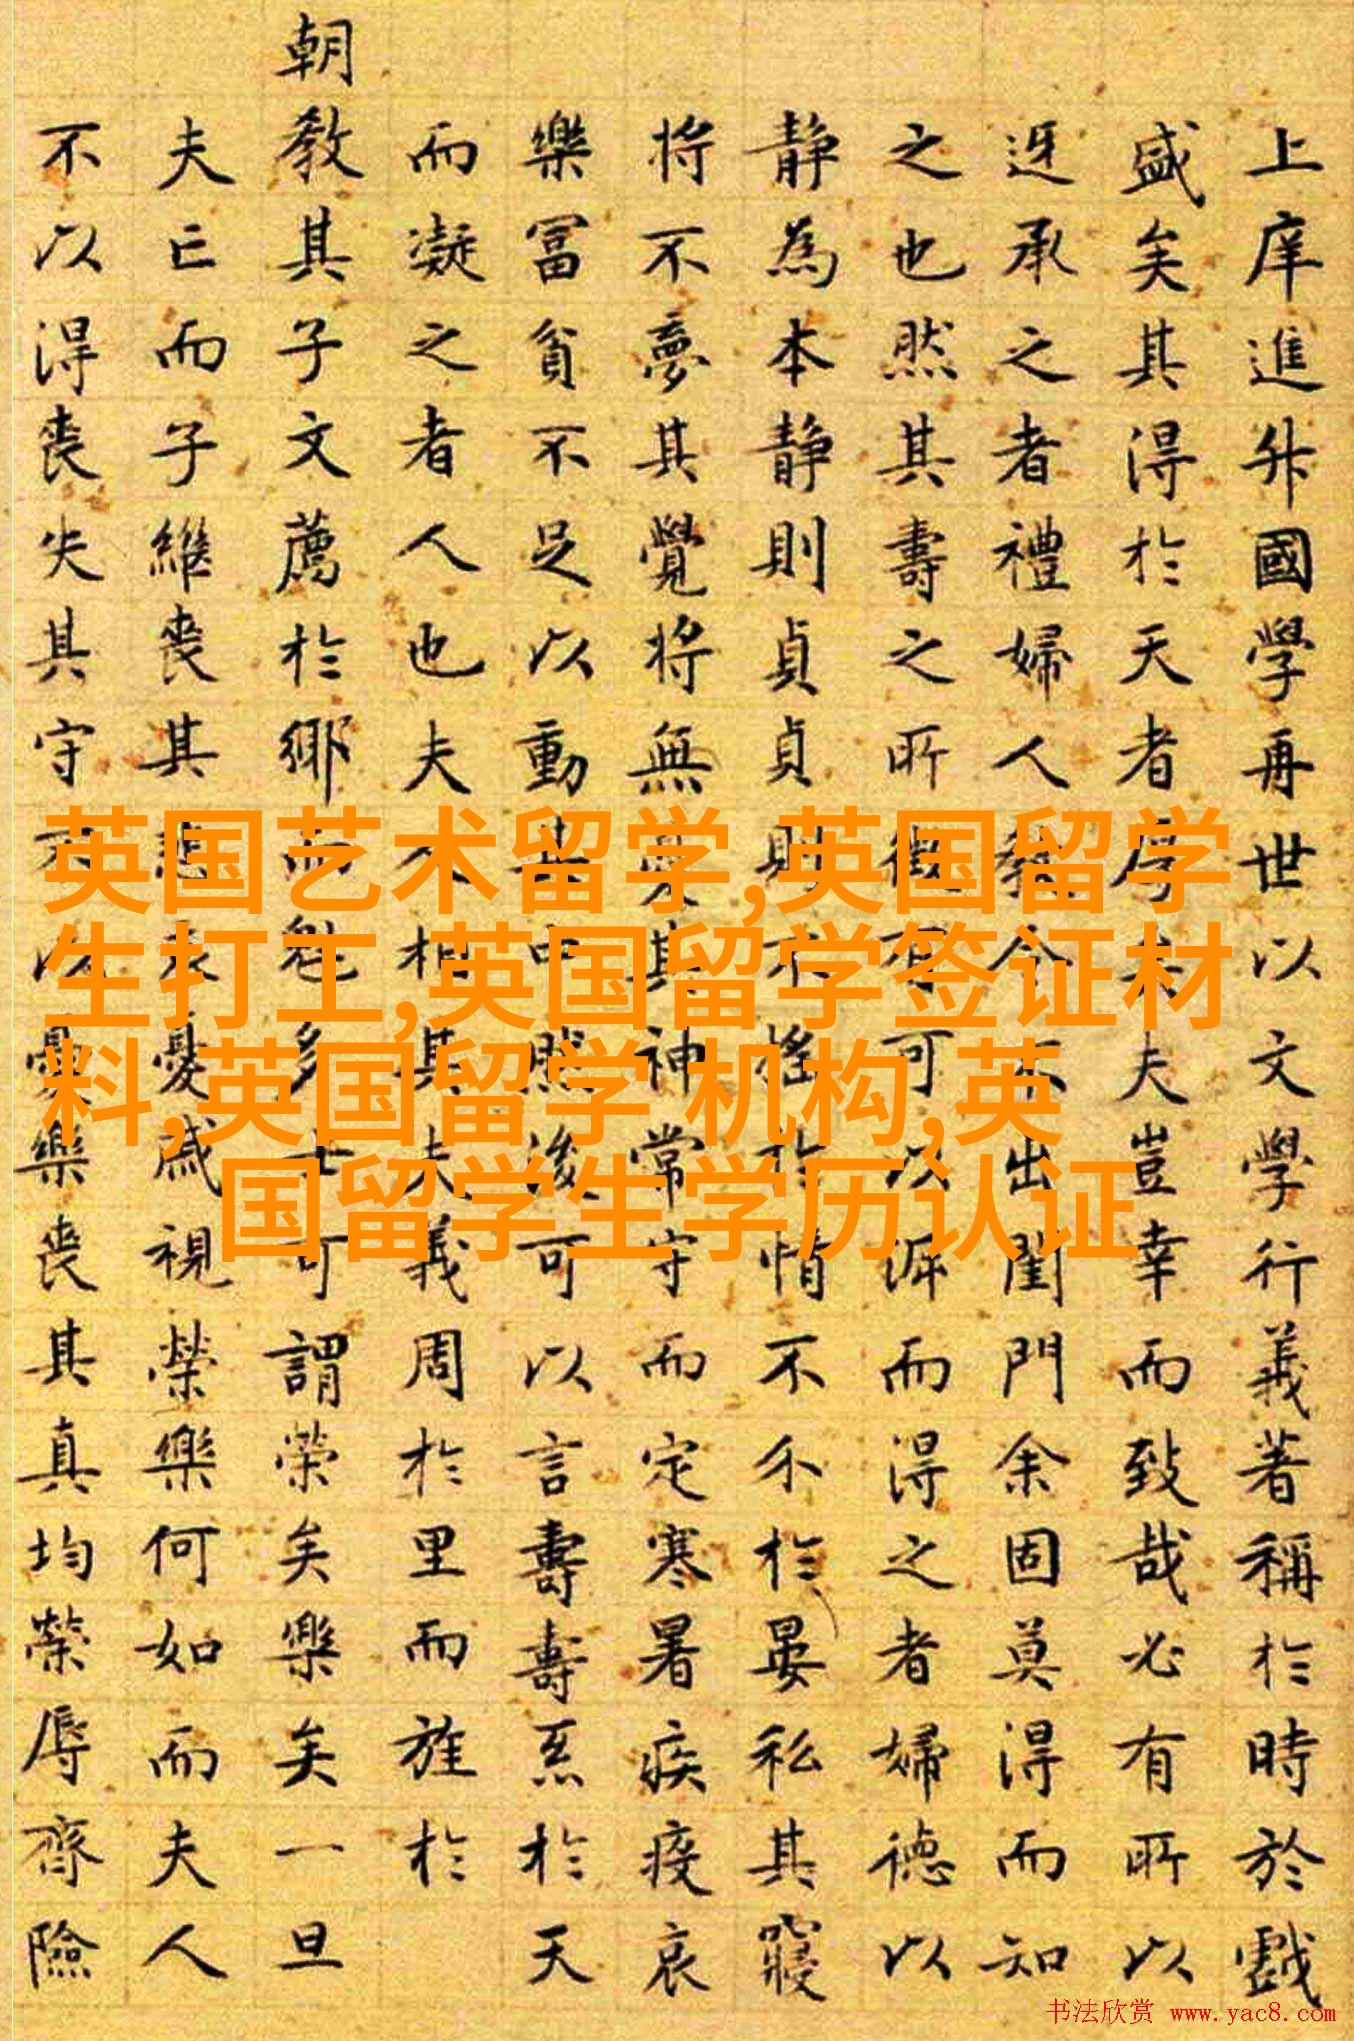 上庠進升國學再世以文學行義著稱於時於戲
盛矣其得於天者厚夫豈幸而致哉必有所以
迓承之者禮婦人教令不出閨門余固莫得而知
之也然其壽之所徵有可以而得之者婦德以
静為本静則貞貞則不搖於情不尒於晏私其寢
将不夢其覺将無其神常守而定寒暑疾疫哀
樂冨貧不足以動其中然後可以言壽壽系於天
而凝之者人也夫人相其夫義周於里而旌於
朝教其子文薦於鄉而魁多士可謂荣矣樂矣一旦
夫亡而子継喪其悲哀憂戚視榮樂何如而夫人
不以得喪失其守不以憂樂喪其真均榮辱齊險
英国艺术留学,英国留学
生打工,英国留学签证材
料,英国留学 机构,英
国留学生学历认证
书法欣赏 www.yac8.com